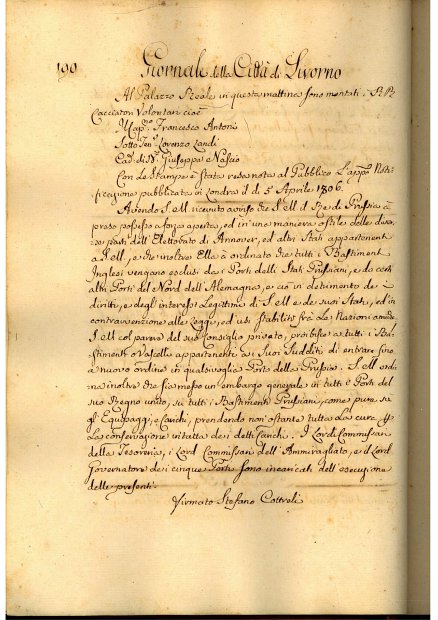 190 Giornale della Città di Livorno
Al Palazzo Reale in questa mattina sono montati i R R
Cacciatori Volontari cioè
Cap.no Francesco Antoni
Sotto Ten.e Lorenzo Landi
Cad. di N. Giuseppe Nascio
Con le Stampe è Stata resa nota al Pubblico l'app. Noti-
ficazione pubblicata in Londra il dì 5 Aprile 1806.
Avendo S. M. ricevuto avviso che S. M. il Re di Prussia à
preso possesso a forza aperta, ed in una maniera ostile delle diver-
se parti dell'Elettorato di Annover, ed altri Stati appartenenti
a S. M., e che inoltre Ella à ordinato che tutti i Bastimenti
Inglesi vengano esclusi da i Porti delli Stati Prussiani, e da certi
altri Porti del Nord dell'Alemagna, e ciò in detrimento de i
diritti, e degl'interessi Legittimi di S. M. e de suoi Stati, ed in
contravenzione alle Leggi, ed usi stabiliti frà le Nazioni amiche,
S. M. col parere del suo Consiglio privato, proibisce a tutti i Ba-
stimenti o Vascelli appartenenti a i Suoi Sudditi di entrare fino
a nuovo ordine in qualsivoglia Porto della Prussia. S. M. ordi-
na inoltre che sia messo un embargo generale in tutti i Porti del
suo Regno unito, su tutti i Bastimenti Prussiani, come pure su
gl'Equipaggi, e Carichi, prendendo non ostante tutta la cura p
la conservazione intatta de i detti Carichi. I Lordi Commissari
della Tesoreria, i Lord Commissari dell'Ammiragliato, e il Lord
Governatore de i cinque Porti sono incaricati dell'esecuzione
delle presenti.
Firmato Stefano Cottrell